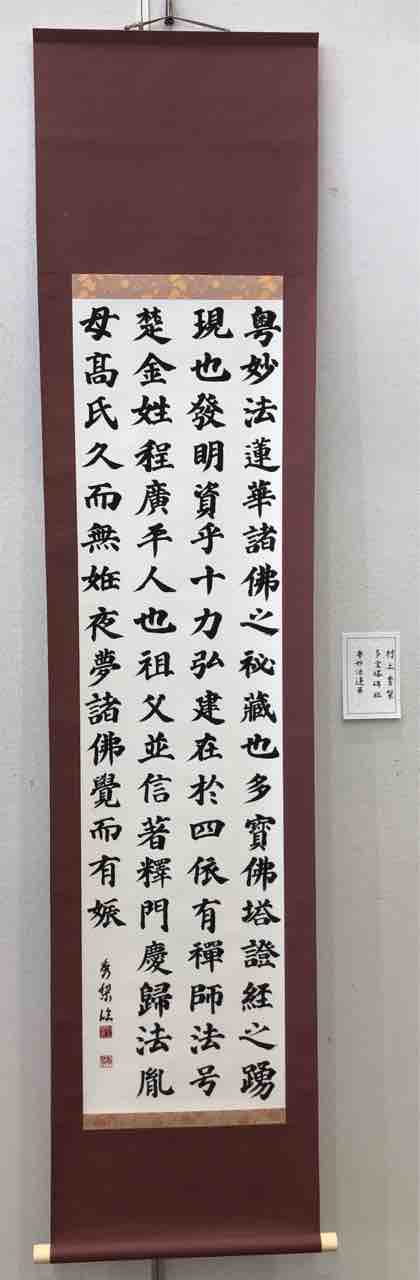 粤妙法蓮華諸佛之祕藏也多寳佛塔證経之踴
現也發明資乎十力弘建在於四依有禅師法号
楚金姓程廣平人也祖父並信著釋門慶歸法胤
母髙氏久而無姙夜夢諸佛覺而有娠
秀梁臨
村上秀梁
多宝塔碑臨
粤妙法蓮華